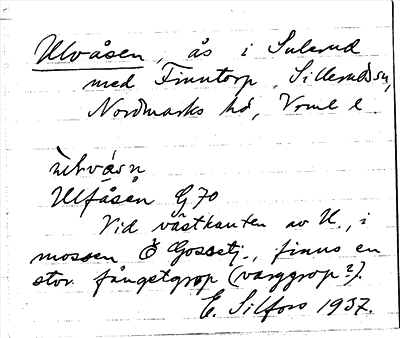 Ulvåsen, ås i Sulerud
med Finntorp, Silleruds sn,
Nordmarks hd, Vrml l.
Ulfåsen G70
Vid västkanten av U., i
mossen Ö Gossetj., finns en
stor fångstgrop (varggrop?).
E. Silfors 1937.